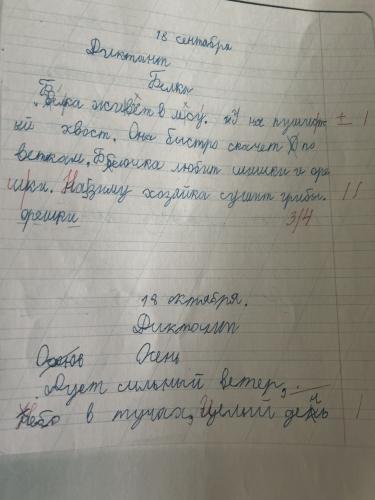 18 сентября
Диктант
Белка
Белка живёт в лесу. У на пушист
ый хвост. Она быстро скачет по
веткам. Белочка любит шишки и оре
шки. На зиму хозяйка сушит грибы.
орешки
3/4
18 октября.
Диктант
Осень
Дует сильный ветер,
Небо в тучах, Целый день